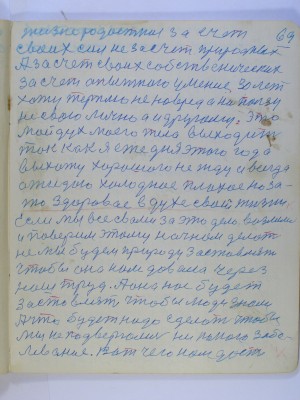 жизнерадостным за счет 69
своих сил не за счет природных
А за счет своих собственических
за счет опытного умения, 30 лет
хожу терплю не по вреда на пользу
не свого лично а другому. Это
мой дух моего тела выходит
так как я еже дня этого года
выхожу хорошого не жду и всегда
ожидаю холодное плохое но за-
то здоровае в духе свой жизни.
Если мы все сами за это дело возьмем
и поверим этому начнем делать
не мы будем природу заставлять
чтобы она нам довала через
наш труд. А она нас будет
заставлять чтобы мы знали
А что будет надо сделать чтобы
мы не подвергали никакого забо-
левания. Вот чего нам даст